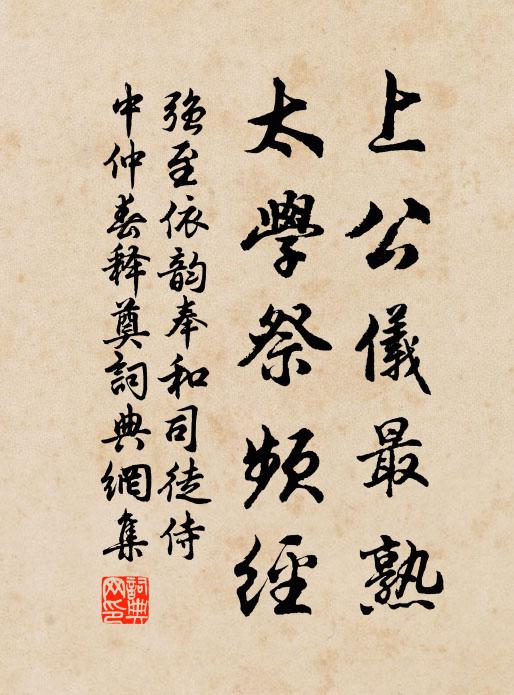 上公儀最熟
太學祭頻經
強至依韵奉和司徒侍
中仲春释奠詞典網集
詞典網印